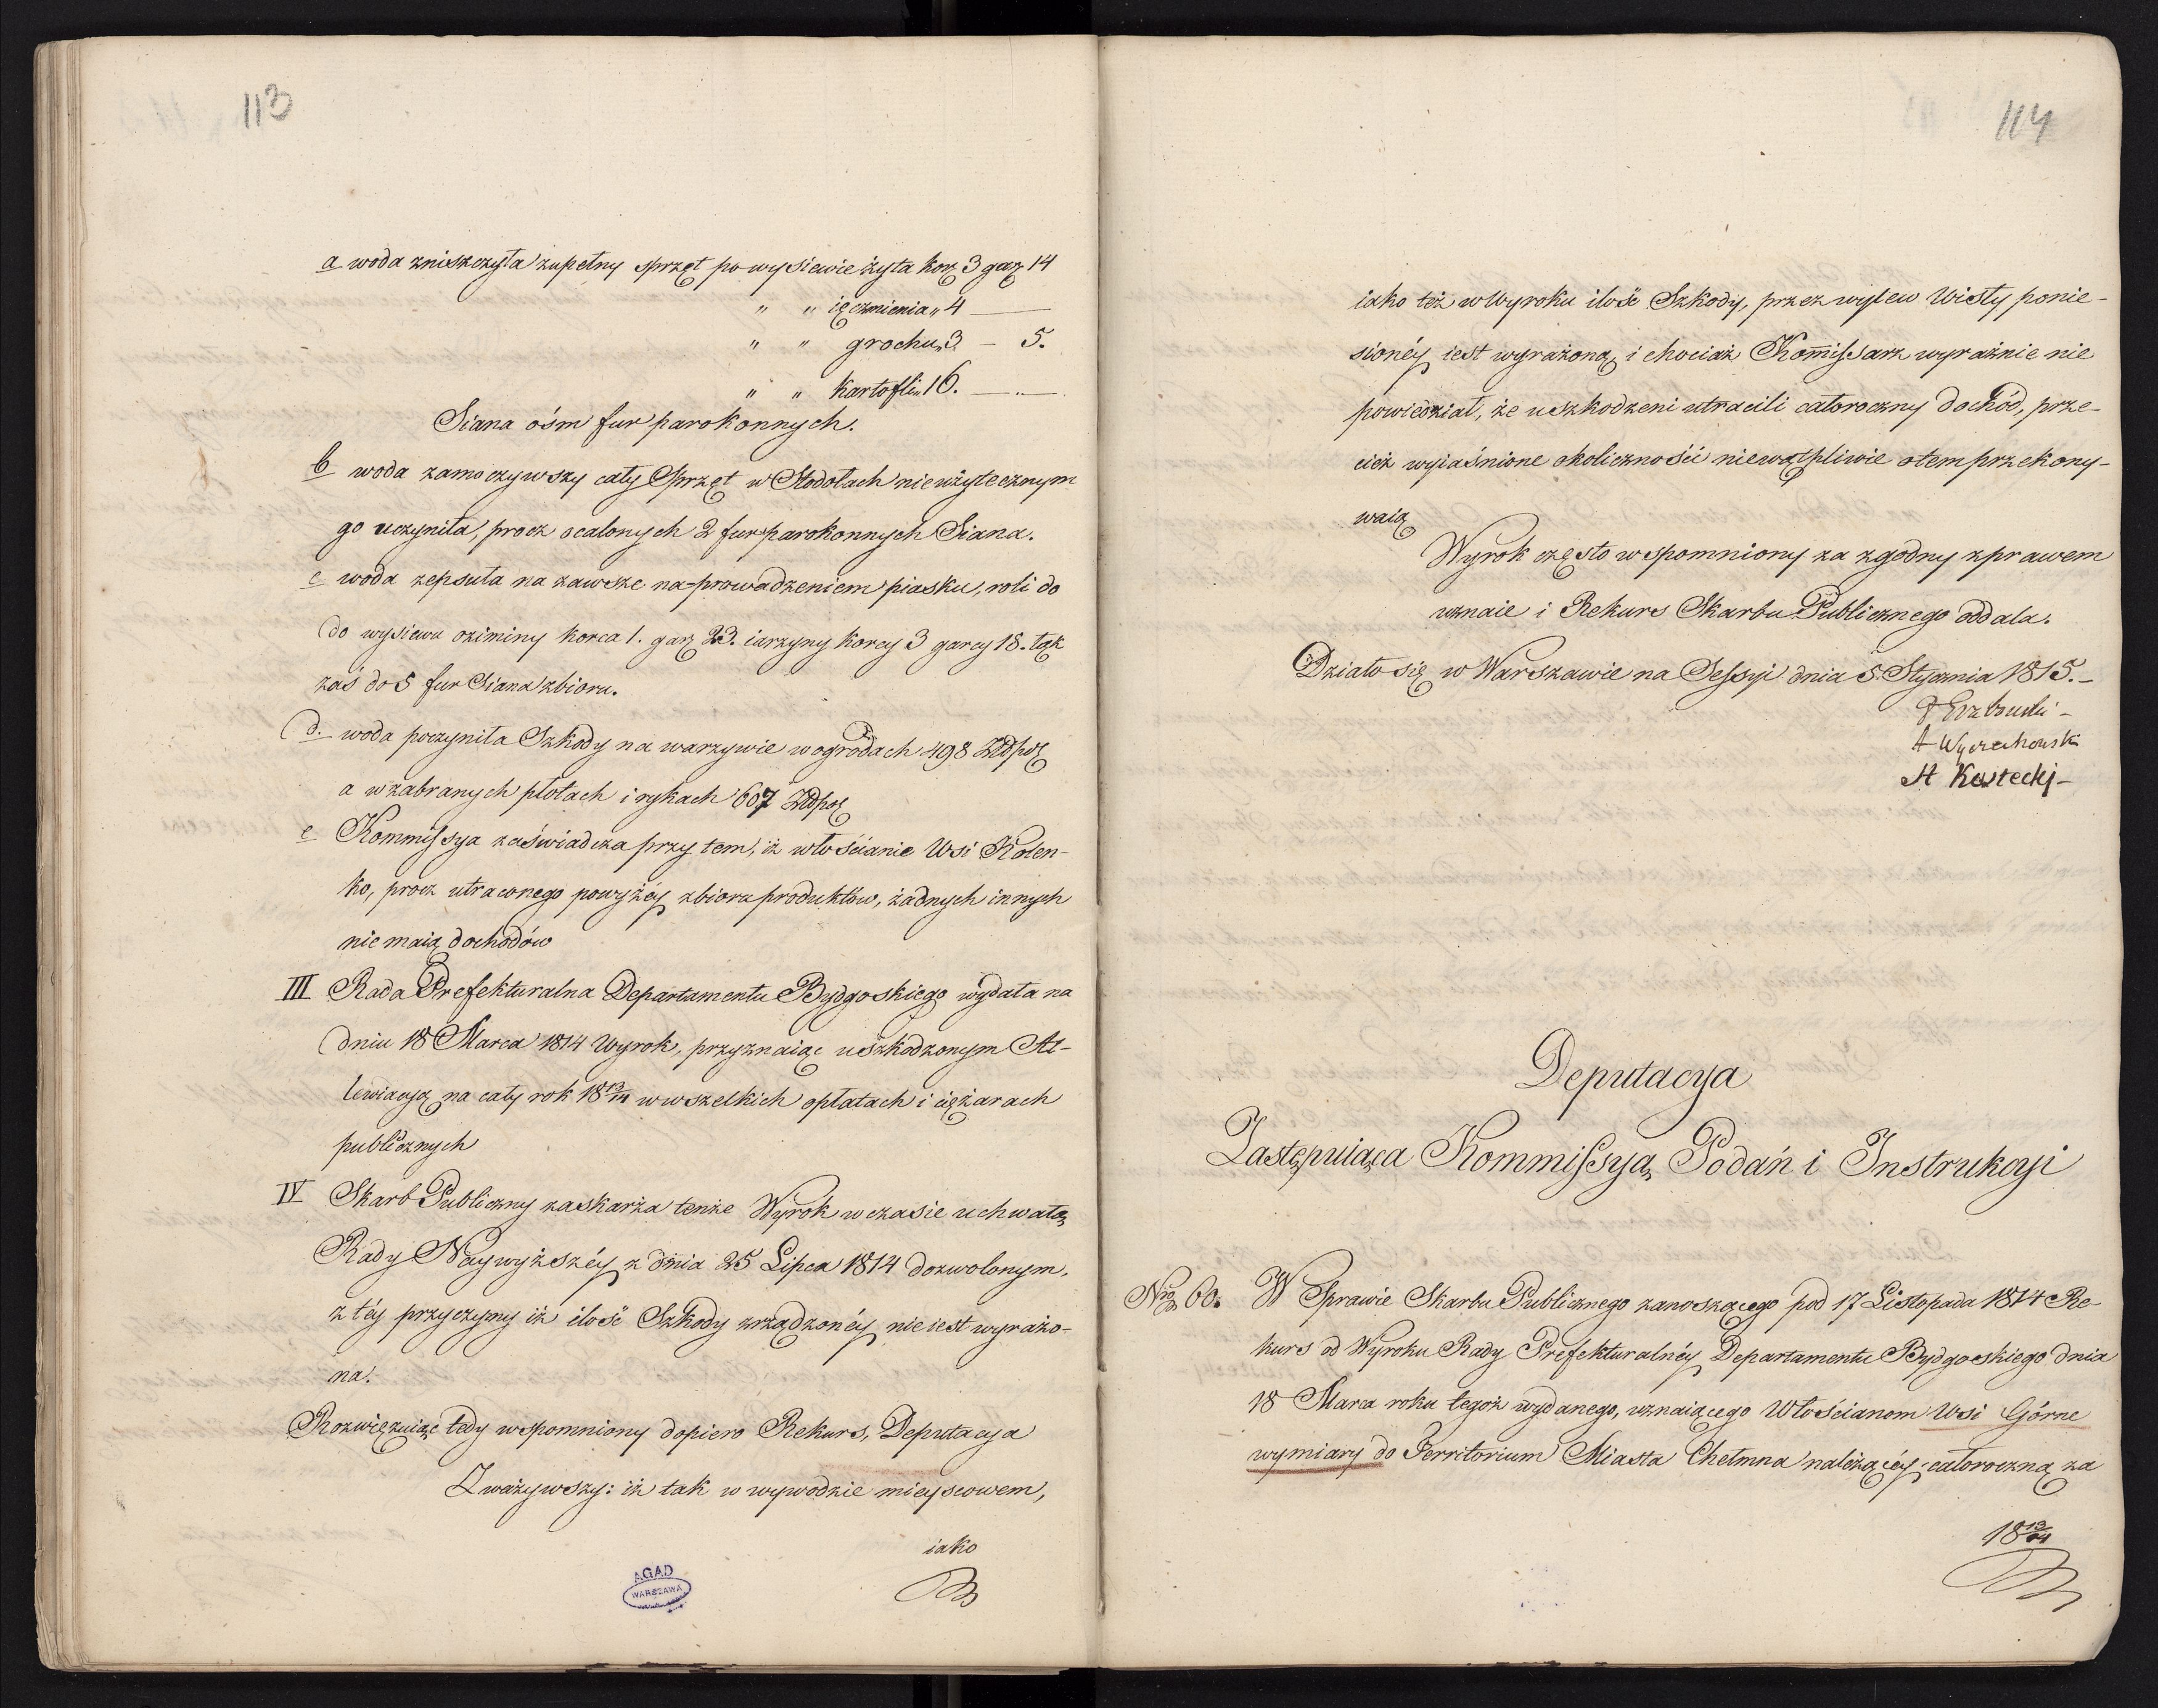 113
a woda zniszczyła zupełny sprzęt po wysiewie żyta korz 3 garz 14
" " ięczmienia „ 4 —
" " grochu „ 3 — 5.
" " Kartofli „ 16. — „ —
Siana ośm fur parokonnych.
b woda zamoczywszy cały Sprzęt w Stodołach nieużytecznym
go uczyniła, procz ocalonych 2 fur parokonnych Siana.
c woda zepsuła na zawsze na-prowadzeniem piasku, roli do
do wysiewu oziminy korca 1. garz 23. iarzyny korcy 3 garcy 18. łąk
zaś do 5 fur Siana zbioru.
d. woda poczyniła Szkody na warzywie w ogrodach 498 Złłpol
a w zabranych płotach i rykach 607 Złłpol
e Kommissya zaświadcza przytem, iż włościanie Wsi Kolen-
ko, procz utraconego powyżéy zbioru produktów, żadnych innych
nie maią dochodów
III Rada Prefekturalna Departamentu Bydgoskiego wydała na
dniu 18 Marca 1814 Wyrok, przyznaiąc uszkodzonym Al-
lewiacyą na cały rok 18 13/14 w wszelkich opłatach i ciężarach
publicznych
IV Skarb Publiczny zaskarża tenże Wyrok w czasie uchwałą
Rady Naywyższéy z dnia 25 Lipca 1814 dozwolonym,
z téy przyczyny iż ilość Szkody zrządzonéy nie iest wyrażo-
na.
Rozwięzuiąc tedy wspomniony dopiero Rekurs, Deputacya
Zważywszy: iż tak w wywodzie mieyscowem,
iako
AGAD
WARSZAWA
114
iako też w Wyroku ilość Szkody, przez wylew Wisły ponie-
sionéy iest wyrażoną, i chociaż Kommissarz wyraźnie nie
powiedział, że uszkodzeni utracili całoroczny dochód, prze-
cież wyiaśnione okoliczności niewątpliwie o tem przekony-
waią
Wyrok często wspomniony za zgodny z prawem
uznaie i Rekurs Skarbu Publicznego oddala.
Działo się w Warszawie na Sessyi dnia 5. Stycznia 1815. –
A Wyczechowski
A Kostecki –
Deputacya
Zastępuiąca Kommissyą Podań i Instrukcyi
Nro 60. W Sprawie Skarbu Publicznego zanoszącego pod 17 Listopada 1814 Re-
kurs od Wyroku Rady Prefekturalnéy Departamentu Bydgoskiego dnia
18 Marca roku tegoż wydanego, uznaiącego Włościanom Wsi Górne
wymiary do Territorium Miasta Chełmna należącéy całoroczną za
18 13/14